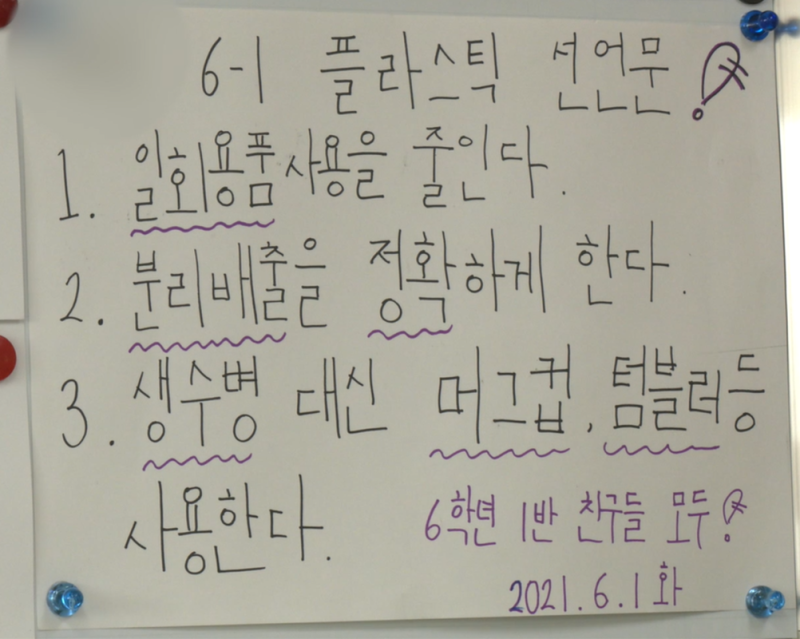 6-1 플라스틱 선언문
1. 일회용품 사용을 줄인다.
2. 분리배출을 정확하게 한다.
3. 생수병 대신 머그컵, 텀블러등
사용한다.
6학년 1반 친구들 모두
2021.6.1 화